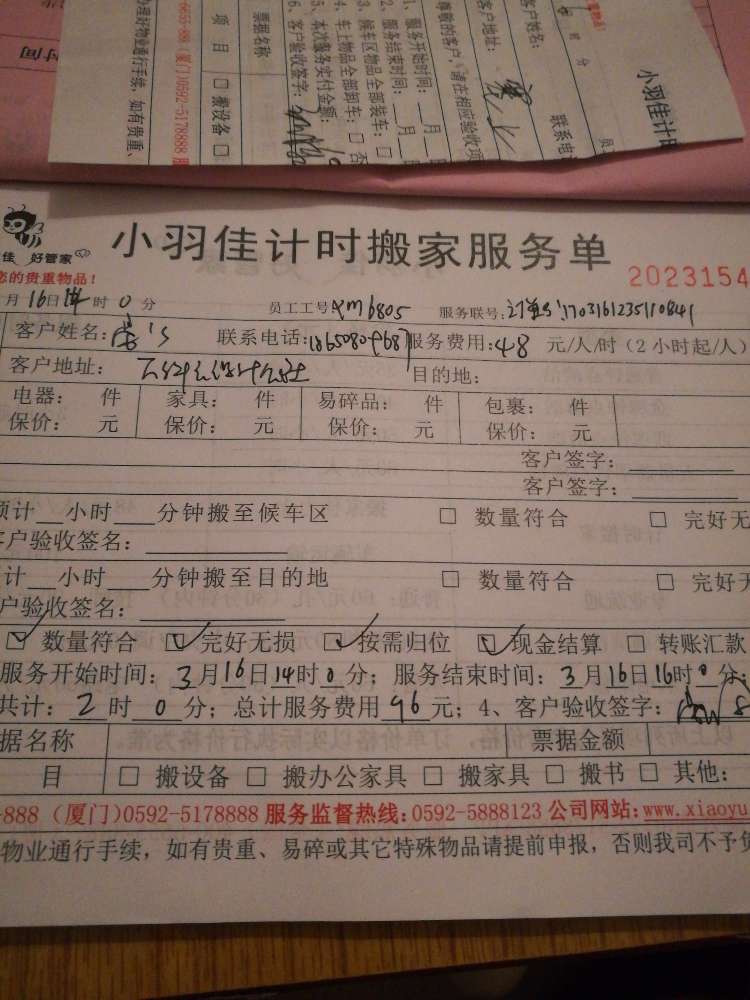 小羽佳计时
客户姓名:
联系电
客户地址:
尊敬的客户,请在相应验收项
1、服务开始时间: 月 日
2、服务结束时间: 月 日
3、候车区物品全部装车:□
4、车上物品全部卸车:□ 否
5、本次服务实付金额:
6、客户验收签字:
票据名称
项 目 □ 搬设备 □
(厦门)0592-5178888 服
办理好物业通行手续,如有贵重、
佳 好管家
小羽佳计时搬家服务单
您的贵重物品!
2023154
月16日14时0分 员工工号xm6805 服务联号:
客户姓名: 联系电话: 服务费用:48 元/人/时(2小时起/人)
客户地址: 目的地:
电器: 件 家具: 件 易碎品: 件 包裹: 件
保价: 元 保价: 元 保价: 元 保价: 元
客户签字:
客户签字:
预计__小时___分钟搬至候车区 □ 数量符合 □ 完好无
客户验收签名:
计__小时___分钟搬至目的地 □ 数量符合 □ 完好无
户验收签名:
☑ 数量符合 ☑ 完好无损 ☑ 按需归位 ☑ 现金结算 □ 转账汇款
服务开始时间:3月16日14时0分;服务结束时间:3月16日16时0分;
共计:2时0分;总计服务费用96元;4、客户验收签字:
据名称 票据金额
目 □ 搬设备 □ 搬办公家具 □ 搬家具 □ 搬书 □ 其他:
-888 (厦门)0592-5178888 服务监督热线:0592-5888123 公司网站:www.xiaoyu
物业通行手续,如有贵重、易碎或其它特殊物品请提前申报,否则我司不予负